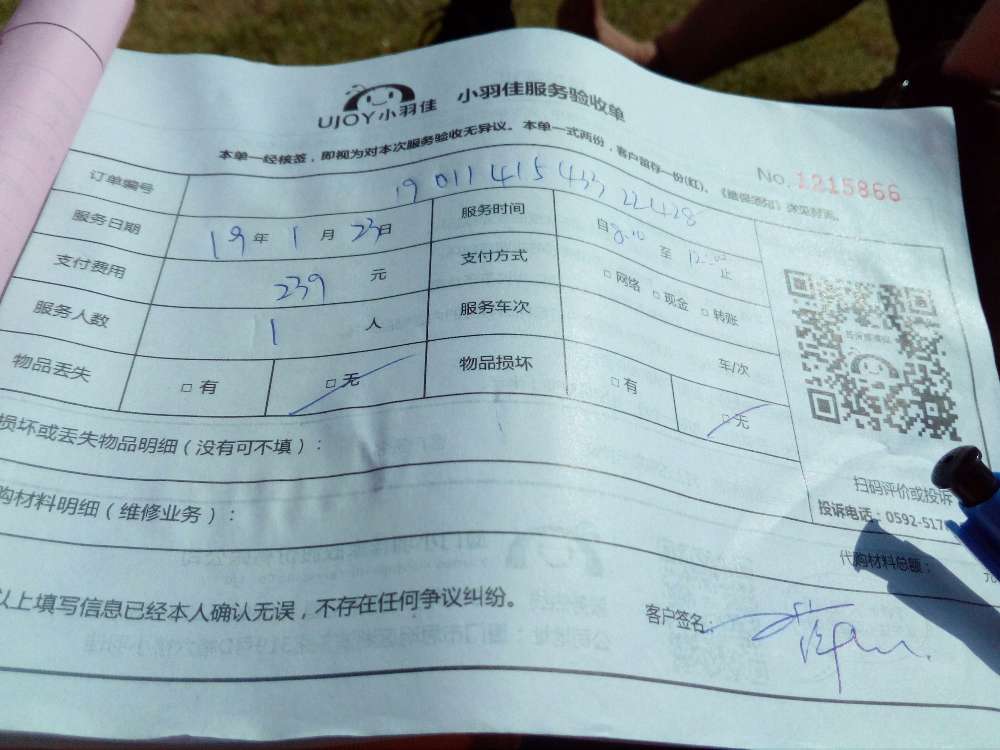 UJOY小羽佳 小羽佳服务验收单
本单一经核签，即视为对本次服务验收无异议。本单一式两份，客户留存一份(红)。
No. 1215866
订单编号 1901141543322428
服务日期 19年1月23日 服务时间 自8:10至12:00止
支付费用 239元 支付方式 □网络 □现金 □转账
服务人数 1人 服务车次 车/次
物品丢失 □有 □无 物品损坏 □有 □无
损坏或丢失物品明细（没有可不填）：
扫码评价或投诉
购材料明细（维修业务）：
投诉电话：0592-517
代购材料总额：
以上填写信息已经本人确认无误，不存在任何争议纠纷。
客户签名：